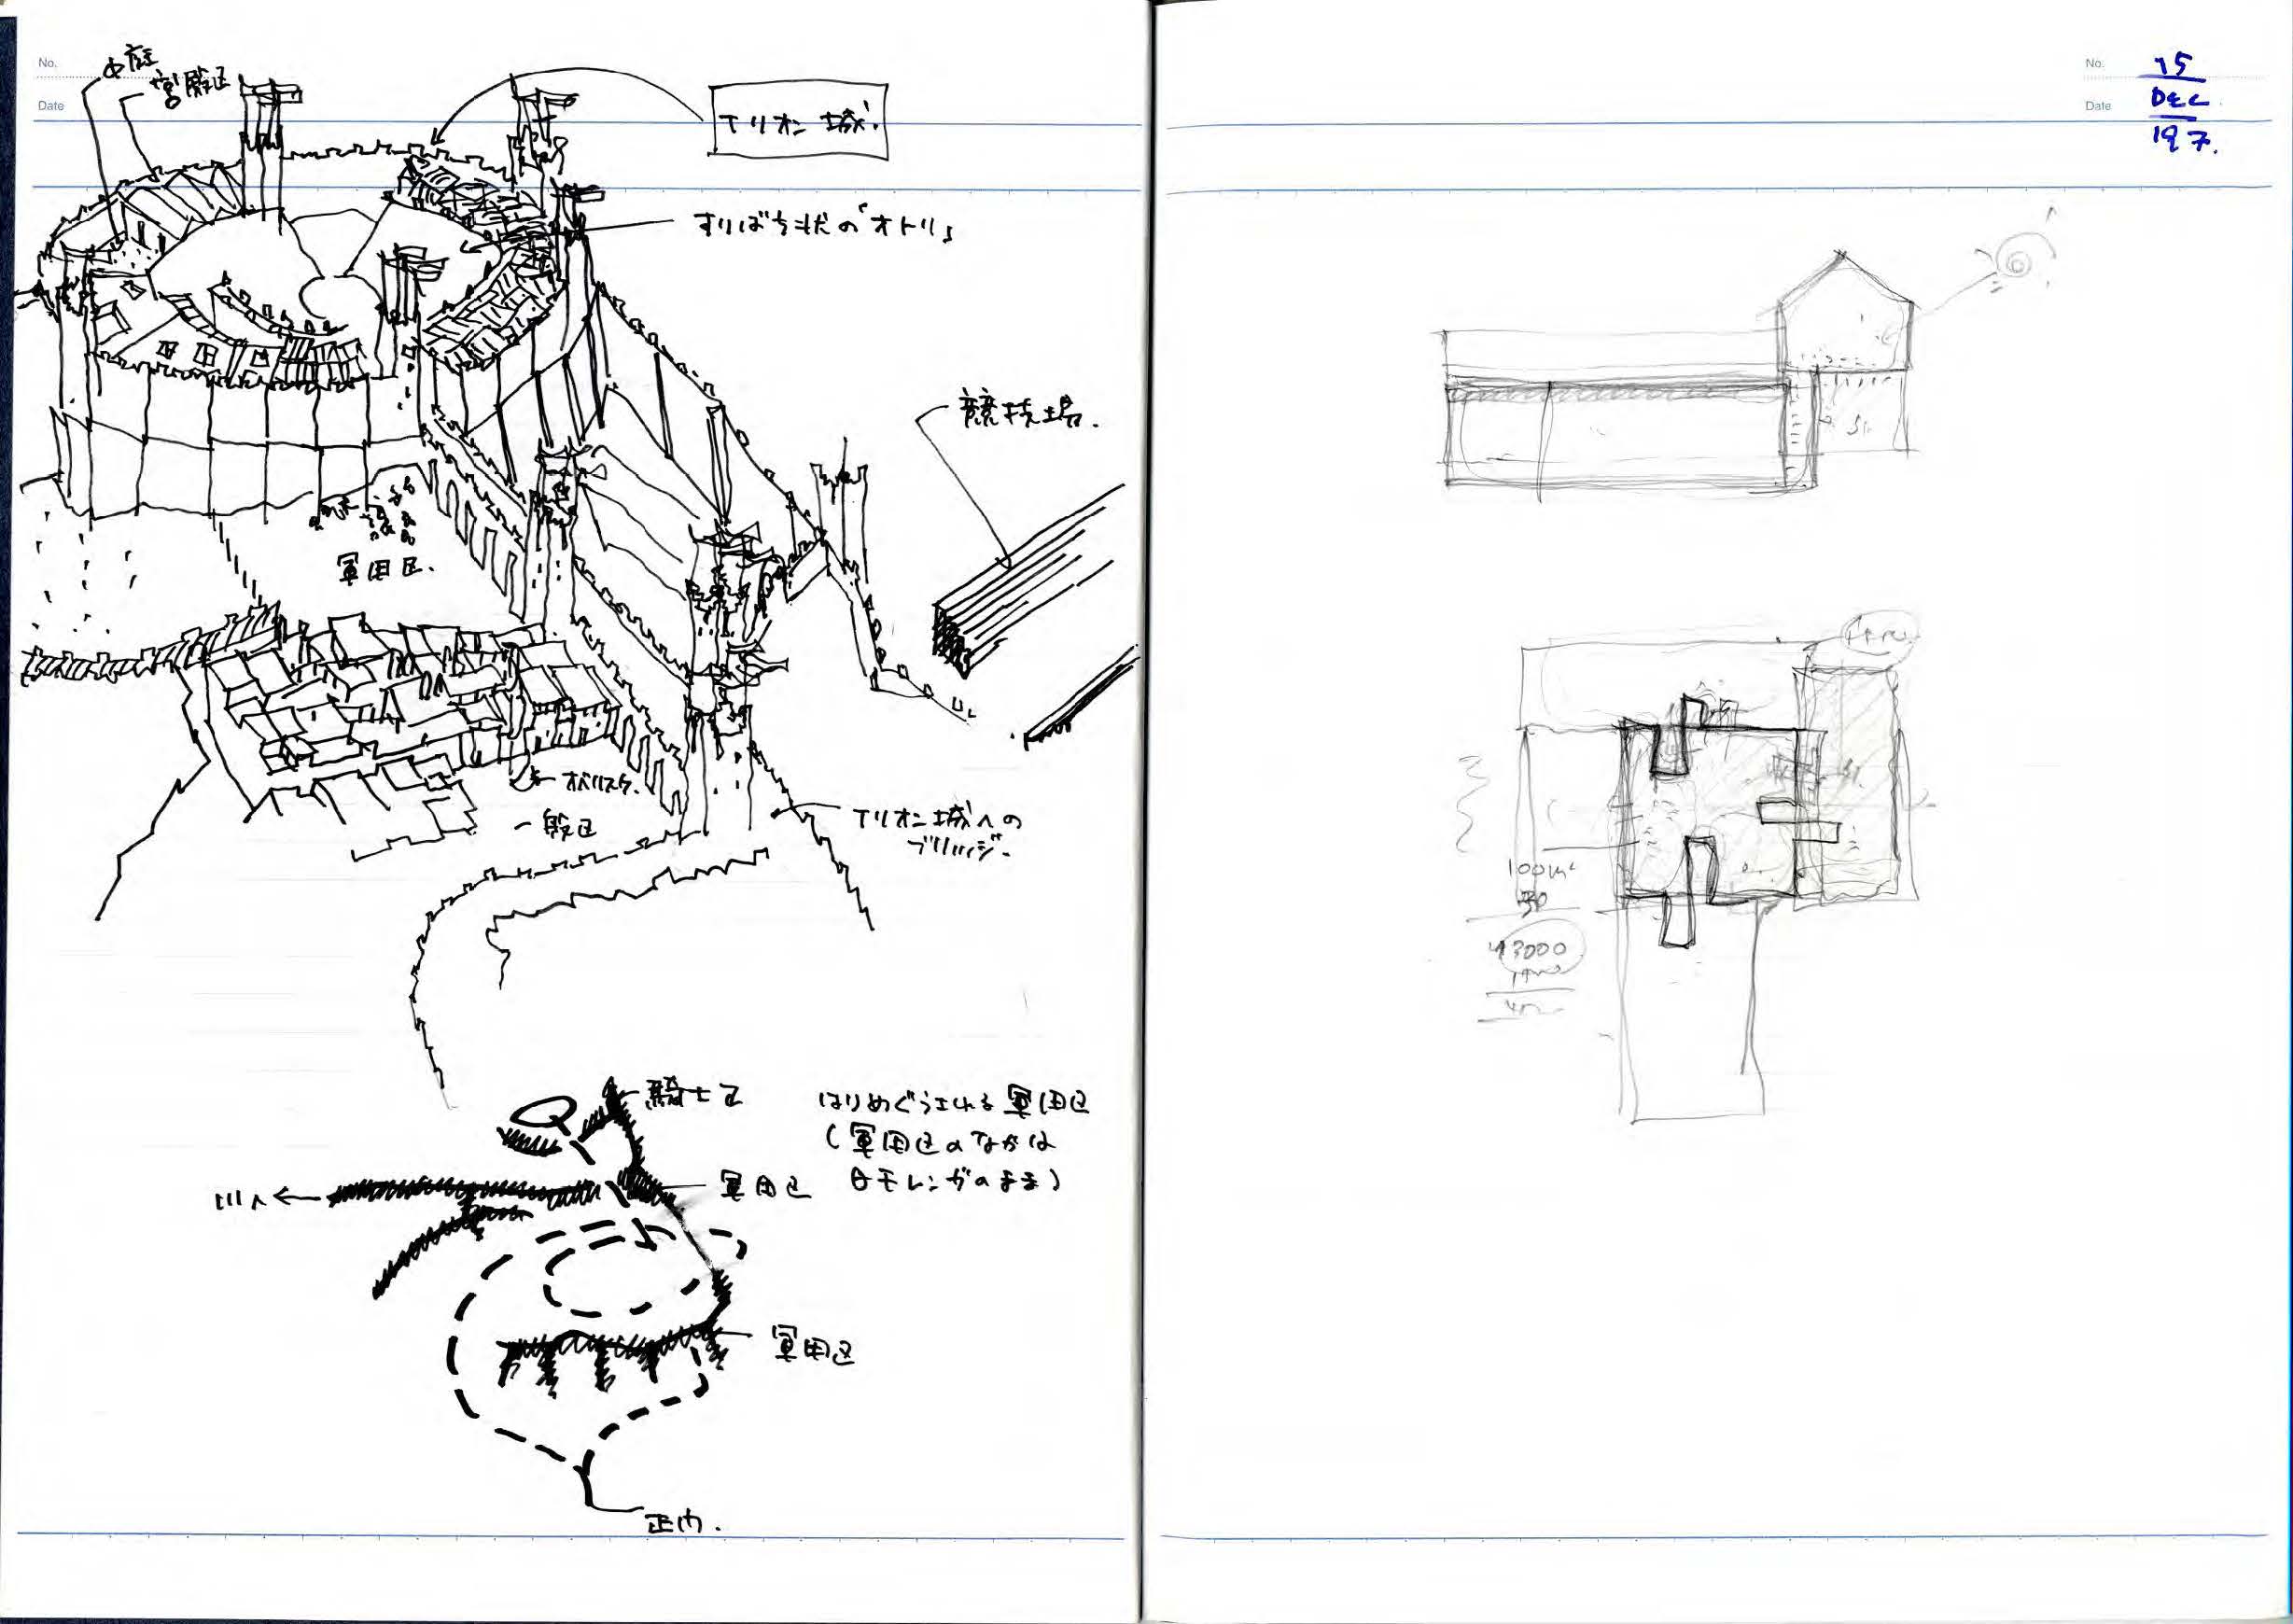 No.
Date
中庭
宮殿区
エリオン城.
すりばち状の「オトリ」
競技場.
軍用区.
オベリスク.
一般区
エリオン城への
ブリッジ.
騎士区
はりめぐらされる軍用区
(軍用区のなかは
日干レンガのまま)
川へ
軍用区
軍用区
正門.
No. 15
Date DEC
197.
100m²
30
3000